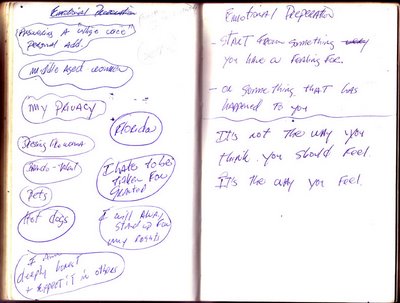 Emotional Preparation
Answering A
personal Add.
middle Aged women
my PRIVACY
Florida
Pets
Hot dogs
I hate to be
taken For
granted
I will Always
stand up For
my rights
I Am
deeply honest
+ expect it in others
Emotional Preparation
START From something
you have a Feeling For.
- or something THAT has
happened to you
It's not the way you
think you should Feel.
It's the way you Feel.